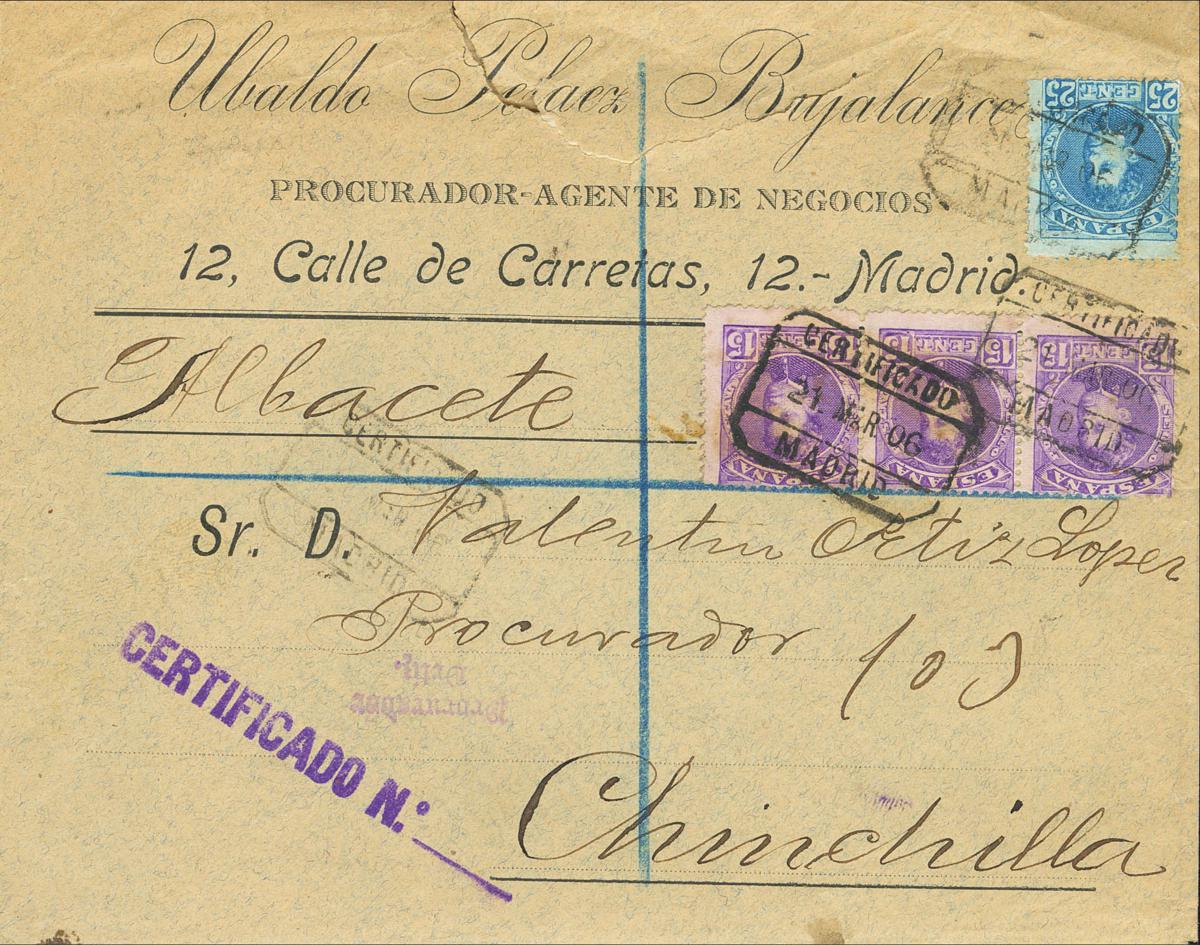 Ubaldo Pelaez Bujalance
PROCURADOR-AGENTE DE NEGOCIOS
12, Calle de Carretas, 12.- Madrid.
25 CENT 25
ESPAÑA
MADRID
15 CENT 15 CENT 15 CENT
ESPAÑA ESPAÑA ESPAÑA
CERTIFICADO
21 MAR 06
MADRID
CERTIFICADO
21 MAR 06
MADRID
Albacete
CERTIFICADO
MADRID
Sr. D. Valentin Ortiz Lopez
Procurador
Procurador
Chinchilla
CERTIFICADO N.º